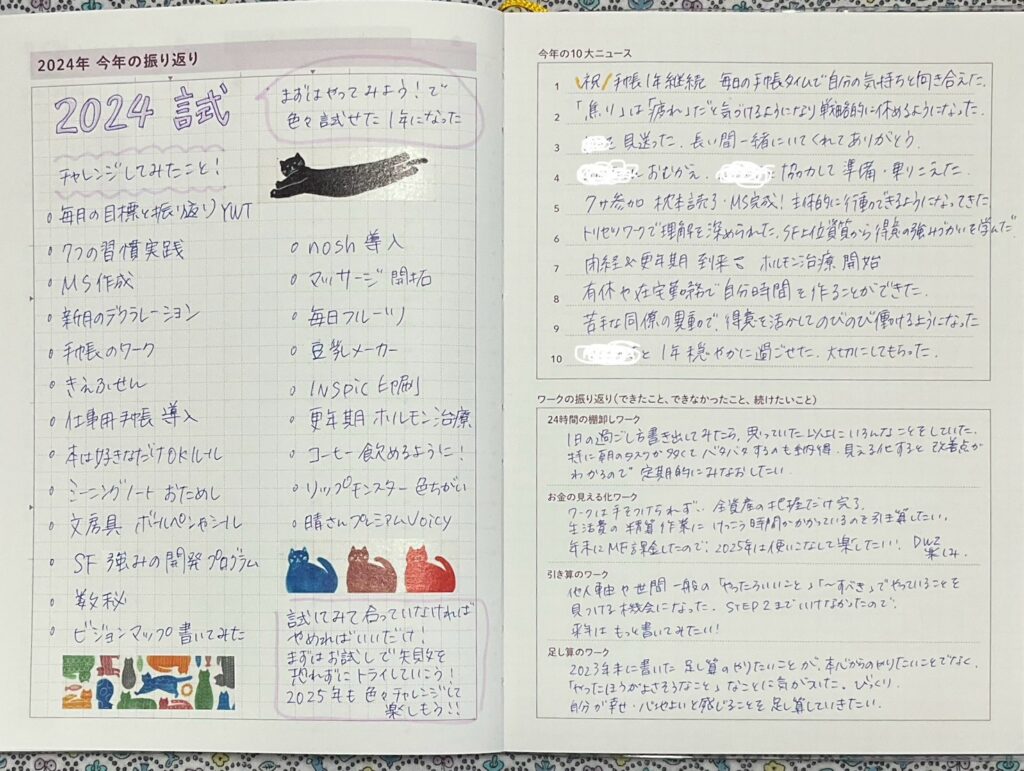 2024年 今年の振り返り
2024 試
まずはやってみよう！で
色々試せた1年になった
チャレンジしてみたこと！
○ 毎月の目標と振り返りYWT
○ 7つの習慣実践
○ MS作成
○ 新月のデクラレーション
○ 手帳のワーク
○ きえふせん
○ 仕事用手帳導入
○ 本は好きなだけOKルール
○ ミーニングノート おためし
○ 文房具 ボールペンやシール
○ SF 強みの開発プログラム
○ 数秘
○ ビジョンマップ書いてみた
○ nosh 導入
○ マッサージ開拓
○ 毎日フルーツ
○ 豆乳メーカー
○ INSPiC 印刷
○ 更年期 ホルモン治療
○ コーヒー飲めるように！
○ リップモンスター 色ちがい
○ 晴さんプレミアムVoicy
試してみて合っていなければ
やめればいいだけ！
まずはお試しで失敗を
恐れずにトライしていこう！
2025年も色々チャレンジして
楽しもう！！
今年の10大ニュース
1 \祝/手帳1年継続 毎日の手帳タイムで自分の気持ちと向き合えた.
2 「焦り」は「疲れ」だと気づけるようになり戦略的に休めるようになった.
3 見送った. 長い間一緒にいてくれてありがとう.
4 おむかえ. 協力して準備・乗りこえた.
5 7サ参加 枕本読了・MS完成！主体的に行動できるようになってきた
6 トリセツワークで理解を深められた. SF上位資質から得意の強みづかいを学んだ.
7 閉経&更年期到来 ホルモン治療開始
8 有休や在宅勤務で自分時間を作ることができた.
9 苦手な同僚の異動で、得意を活かしてのびのび働けるようになった
10 と 1年穏やかに過ごせた. 大切にしてもらった.
ワークの振り返り(できたこと、できなかったこと、続けたいこと)
24時間の棚卸しワーク
1日の過ごし方書き出してみたら、思っていた以上にいろんなことをしていた.
特に朝のタスクが多くてバタバタするのも納得. 見える化すると改善点が
わかるので 定期的にみなおしたい.
お金の見える化ワーク
ワークは手をつけられず… 全資産の把握だけ完了.
生活費の精算作業にけっこう時間がかかっているのを引き算したい.
年末にMF課金したので、2025年は使いこなして楽したい！ DWE
楽しみ
引き算のワーク
他人軸や世間一般の「やったらいいこと」「〜すべき」でやっていることを
見つける機会になった. STEP2までいけなかったので、
来年はもっと書いてみたい！
足し算のワーク
2023年末に書いた足し算のやりたいことが、本心からのやりたいことでなく、
「やったほうがよさそうなこと」なことに気がついた. びっくり.
自分が幸せ・心地よいと感じることを足し算していきたい.